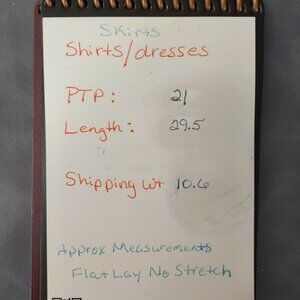 Skirts
Shirts/dresses
PTP: 21
Length: 29.5
Shipping wt 10.6
Approx Measurements
Flat Lay No Stretch